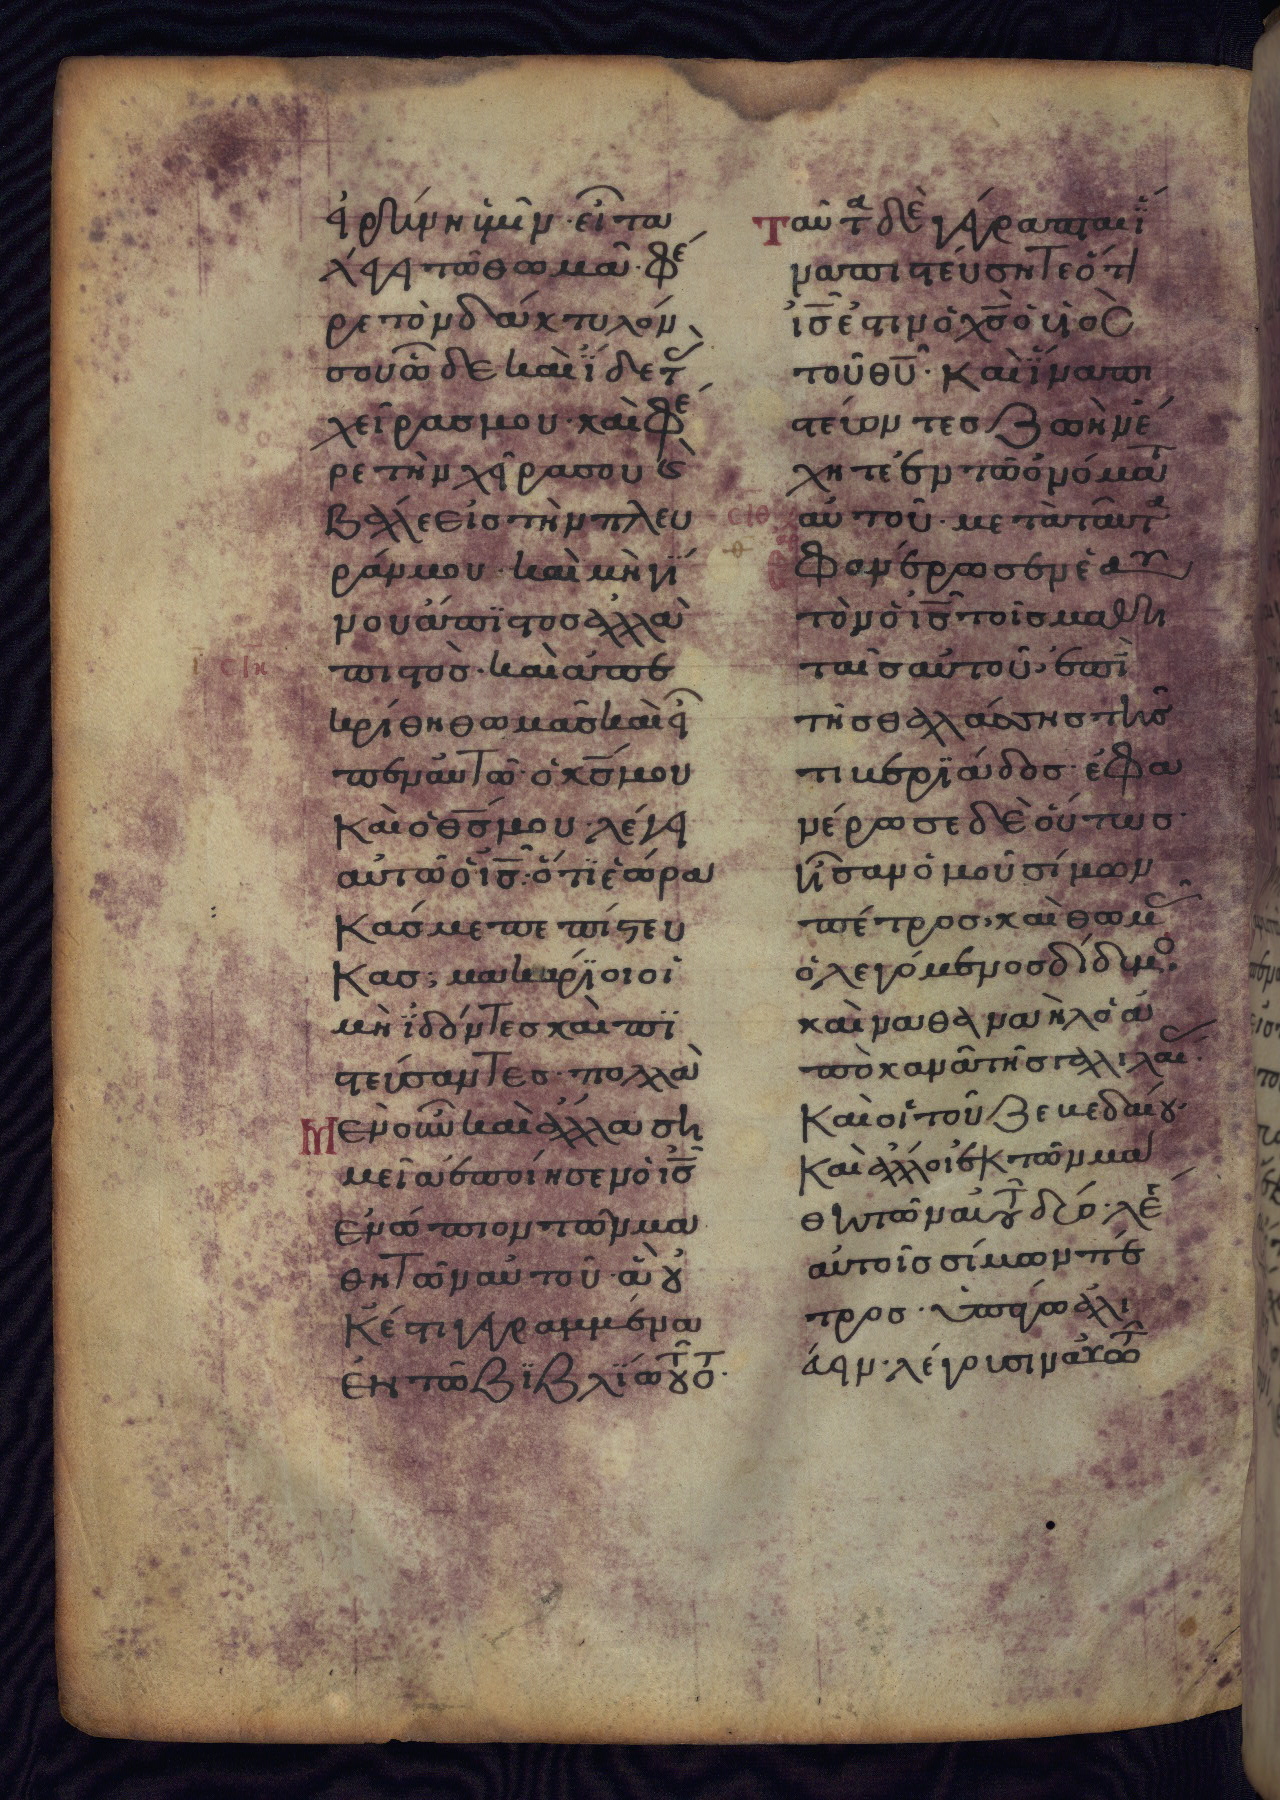 εἰρήνη ὑμῖν· εἶτα
λέγει τῶ θωμᾶ· φέ
ρε τὸν δάκτυλόν
σου ὧδε καὶ ἴδε τ(ὰς)
χεῖρας μου· καὶ φέ
ρε τὴν χεῖρα σου κ(αὶ)
βάλε εἰς τὴν πλευ
ράν μου· καὶ μὴ γί
νου ἄπιστος ἀλλὰ
πιστὸς· καὶ ἀπε
κρίθη θωμᾶς καὶ εἶ
πεν αὐτῶ· ὁ κς μου
καὶ ὁ θς μου· λέγει
αὐτῶ ὁ ις· ὅτι ἑώρα
κάς με πεπίστευ
κας; μακάριοι οἱ
μὴ ἰδόντες καὶ πι
στεύσαντες· πολλὰ
Μὲν οὖν καὶ ἄλλα ση
μεῖα ἐποίησεν ὁ ις
ἐνώπιον τῶν μα
θητῶν αὐτοῦ· ἃ οὐ
κ ἔστι γεγραμμένα
ἐν τῶ βιβλίω τούτ(ω)·
Ταῦτα δὲ γέγραπται ἵ
να πιστεύσητε ὅτι
ις ἐστιν ὁ χς ὁ υἱὸς
τοῦ θυ· καὶ ἵνα πι
στεύοντες ζωὴν ἔ
χητε ἐν τῶ ὀνόματ(ι)
αὐτοῦ· μετὰ ταῦτα
ἐφανέρωσεν ἑαυ
τὸν ὁ ις τοῖς μαθη
ταῖς αὐτοῦ, ἐπὶ
τῆς θαλάσσης τῆς
τιβεριάδος· ἐφα
νέρωσε δὲ οὕτως·
ἦσαν ὁμοῦ σίμων
πέτρος, καὶ θωμᾶς
ὁ λεγόμενος δίδυμο(ς)·
καὶ ναθαναὴλ ὁ ἀ
πὸ κανᾶ τῆς γαλιλαί(ας)·
καὶ οἱ τοῦ ζεβεδαίου·
καὶ ἄλλοι ἐκ τῶν μα
θητῶν αὐτοῦ δύο· λέγει
αὐτοῖς σίμων πέ
τρος· ὑπάγω ἁλι
εύειν· λέγουσιν αὐτῶ